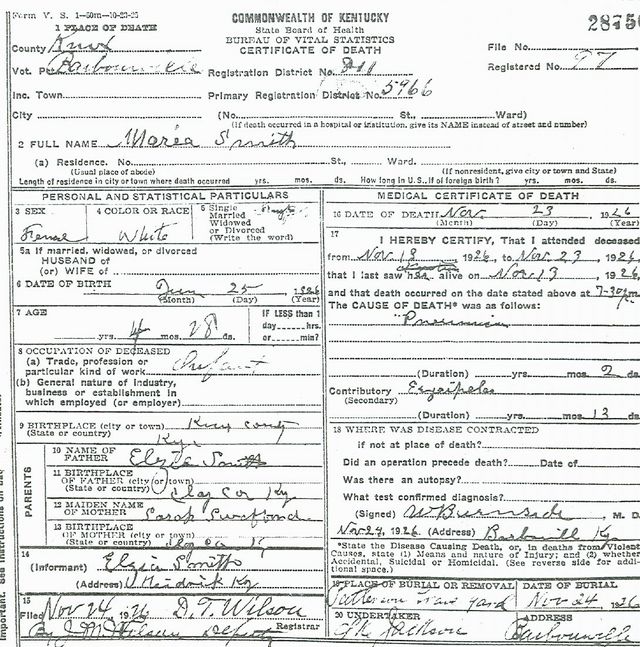 Form V. S. 1-50m-10-23-25
COMMONWEALTH OF KENTUCKY
State Board of Health
BUREAU OF VITAL STATISTICS
CERTIFICATE OF DEATH
28750
1 PLACE OF DEATH
County Knox
File No.
Vot. Pct Barbourville
Registration District No. 211
Registered No. 97
Inc. Town
Primary Registration District No. 5966
City (No. St., Ward)
(If death occurred in a hospital or institution, give its NAME instead of street and number)
2 FULL NAME Maria Smith
(a) Residence. No. St., Ward.
(Usual place of abode) (If nonresident, give city or town and State)
Length of residence in city or town where death occurred yrs. mos. ds. How long in U. S., if of foreign birth? yrs. mos. ds.
PERSONAL AND STATISTICAL PARTICULARS
3 SEX
Female
4 COLOR OR RACE
White
5 Single
Married
Widowed
or Divorced
(Write the word)
Single
5a If married, widowed, or divorced
HUSBAND of
(or) WIFE of
6 DATE OF BIRTH Jun 25 1926
(Month) (Day) (Year)
7 AGE
yrs. 4 mos. 28 ds.
IF LESS than 1
day hrs.
or min?
8 OCCUPATION OF DECEASED
(a) Trade, profession or
particular kind of work Infant
(b) General nature of industry,
business or establishment in
which employed (or employer)
9 BIRTHPLACE (city or town) Knox County
(State or country) Ky
PARENTS
10 NAME OF
FATHER Elzie Smith
11 BIRTHPLACE
OF FATHER (city or town)
(State or country) Clay Co Ky
12 MAIDEN NAME
OF MOTHER Sarah
13 BIRTHPLACE
OF MOTHER (city or town)
(State or country)
14
(Informant) Elzie Smith
(Address) Ky
15
Filed Nov 24, 1926 D. T. Wilson
Registrar
By J M Wilson Deputy
MEDICAL CERTIFICATE OF DEATH
16 DATE OF DEATH Nov 23 1926
(Month) (Day) (Year)
17
I HEREBY CERTIFY, That I attended deceased
from Nov 13 1926, to Nov 23, 1926,
that I last saw her alive on Nov 13, 1926,
and that death occurred on the date stated above at 7-30 pm
The CAUSE OF DEATH* was as follows:
Pneumonia
(Duration) yrs. mos. 2 ds.
Contributory Erysipelas
(Secondary)
(Duration) yrs. mos. 13 ds.
18 WHERE WAS DISEASE CONTRACTED
if not at place of death?
Did an operation precede death? Date of
Was there an autopsy?
What test confirmed diagnosis?
(Signed) W Burnside, M. D.
Nov 24, 1926. (Address) Barbourville Ky
*State the Disease Causing Death, or, in deaths from Violent
Causes, state (1) Means and nature of Injury; and (2) whether
Accidental, Suicidal or Homicidal. (See reverse side for addi-
tional space.)
19 PLACE OF BURIAL OR REMOVAL
Patterson Grave Yard
DATE OF BURIAL
Nov 24 1926
20 UNDERTAKER
Jackson
ADDRESS
Barbourville
Important. See instructions on